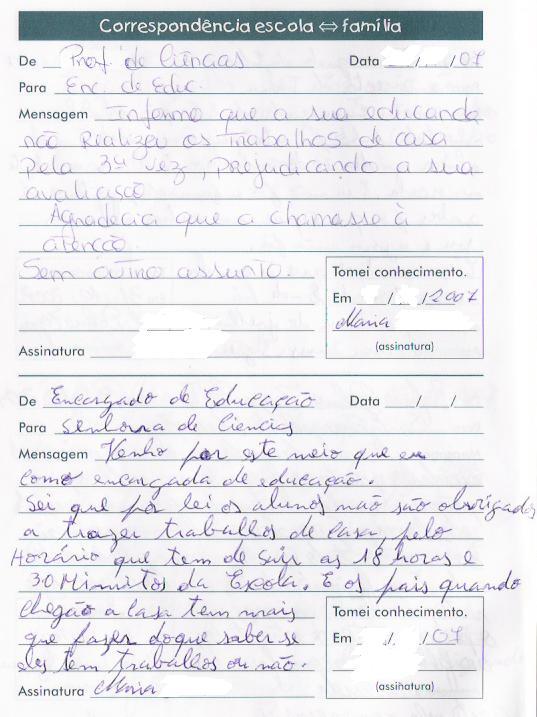 Correspondência escola ⇔ família
De Prof. de Ciências Data / /07
Para Enc. de Educ.
Mensagem Informo que a sua educanda
não realizou os trabalhos de casa
pela 3ª vez, prejudicando a sua
avaliação
Agradecia que a chamasse à
atenção.
Sem outro assunto.
Tomei conhecimento.
Em / /2007
Maria
(assinatura)
Assinatura
De Encargado de Educação Data / /
Para senhora de Ciencias
Mensagem Venho por este meio que eu
como encargada de educação.
Sei que por lei os alunos não são obrigados
a trazer trabalhos de casa, pelo
Horário que tem de sair as 18 horas e
30 Minutos da Escola. E os pais quando
chegão a casa tem mais
que fazer doque saber se
eles tem trabalhos ou não.
Tomei conhecimento.
Em / /07
(assinatura)
Assinatura Maria